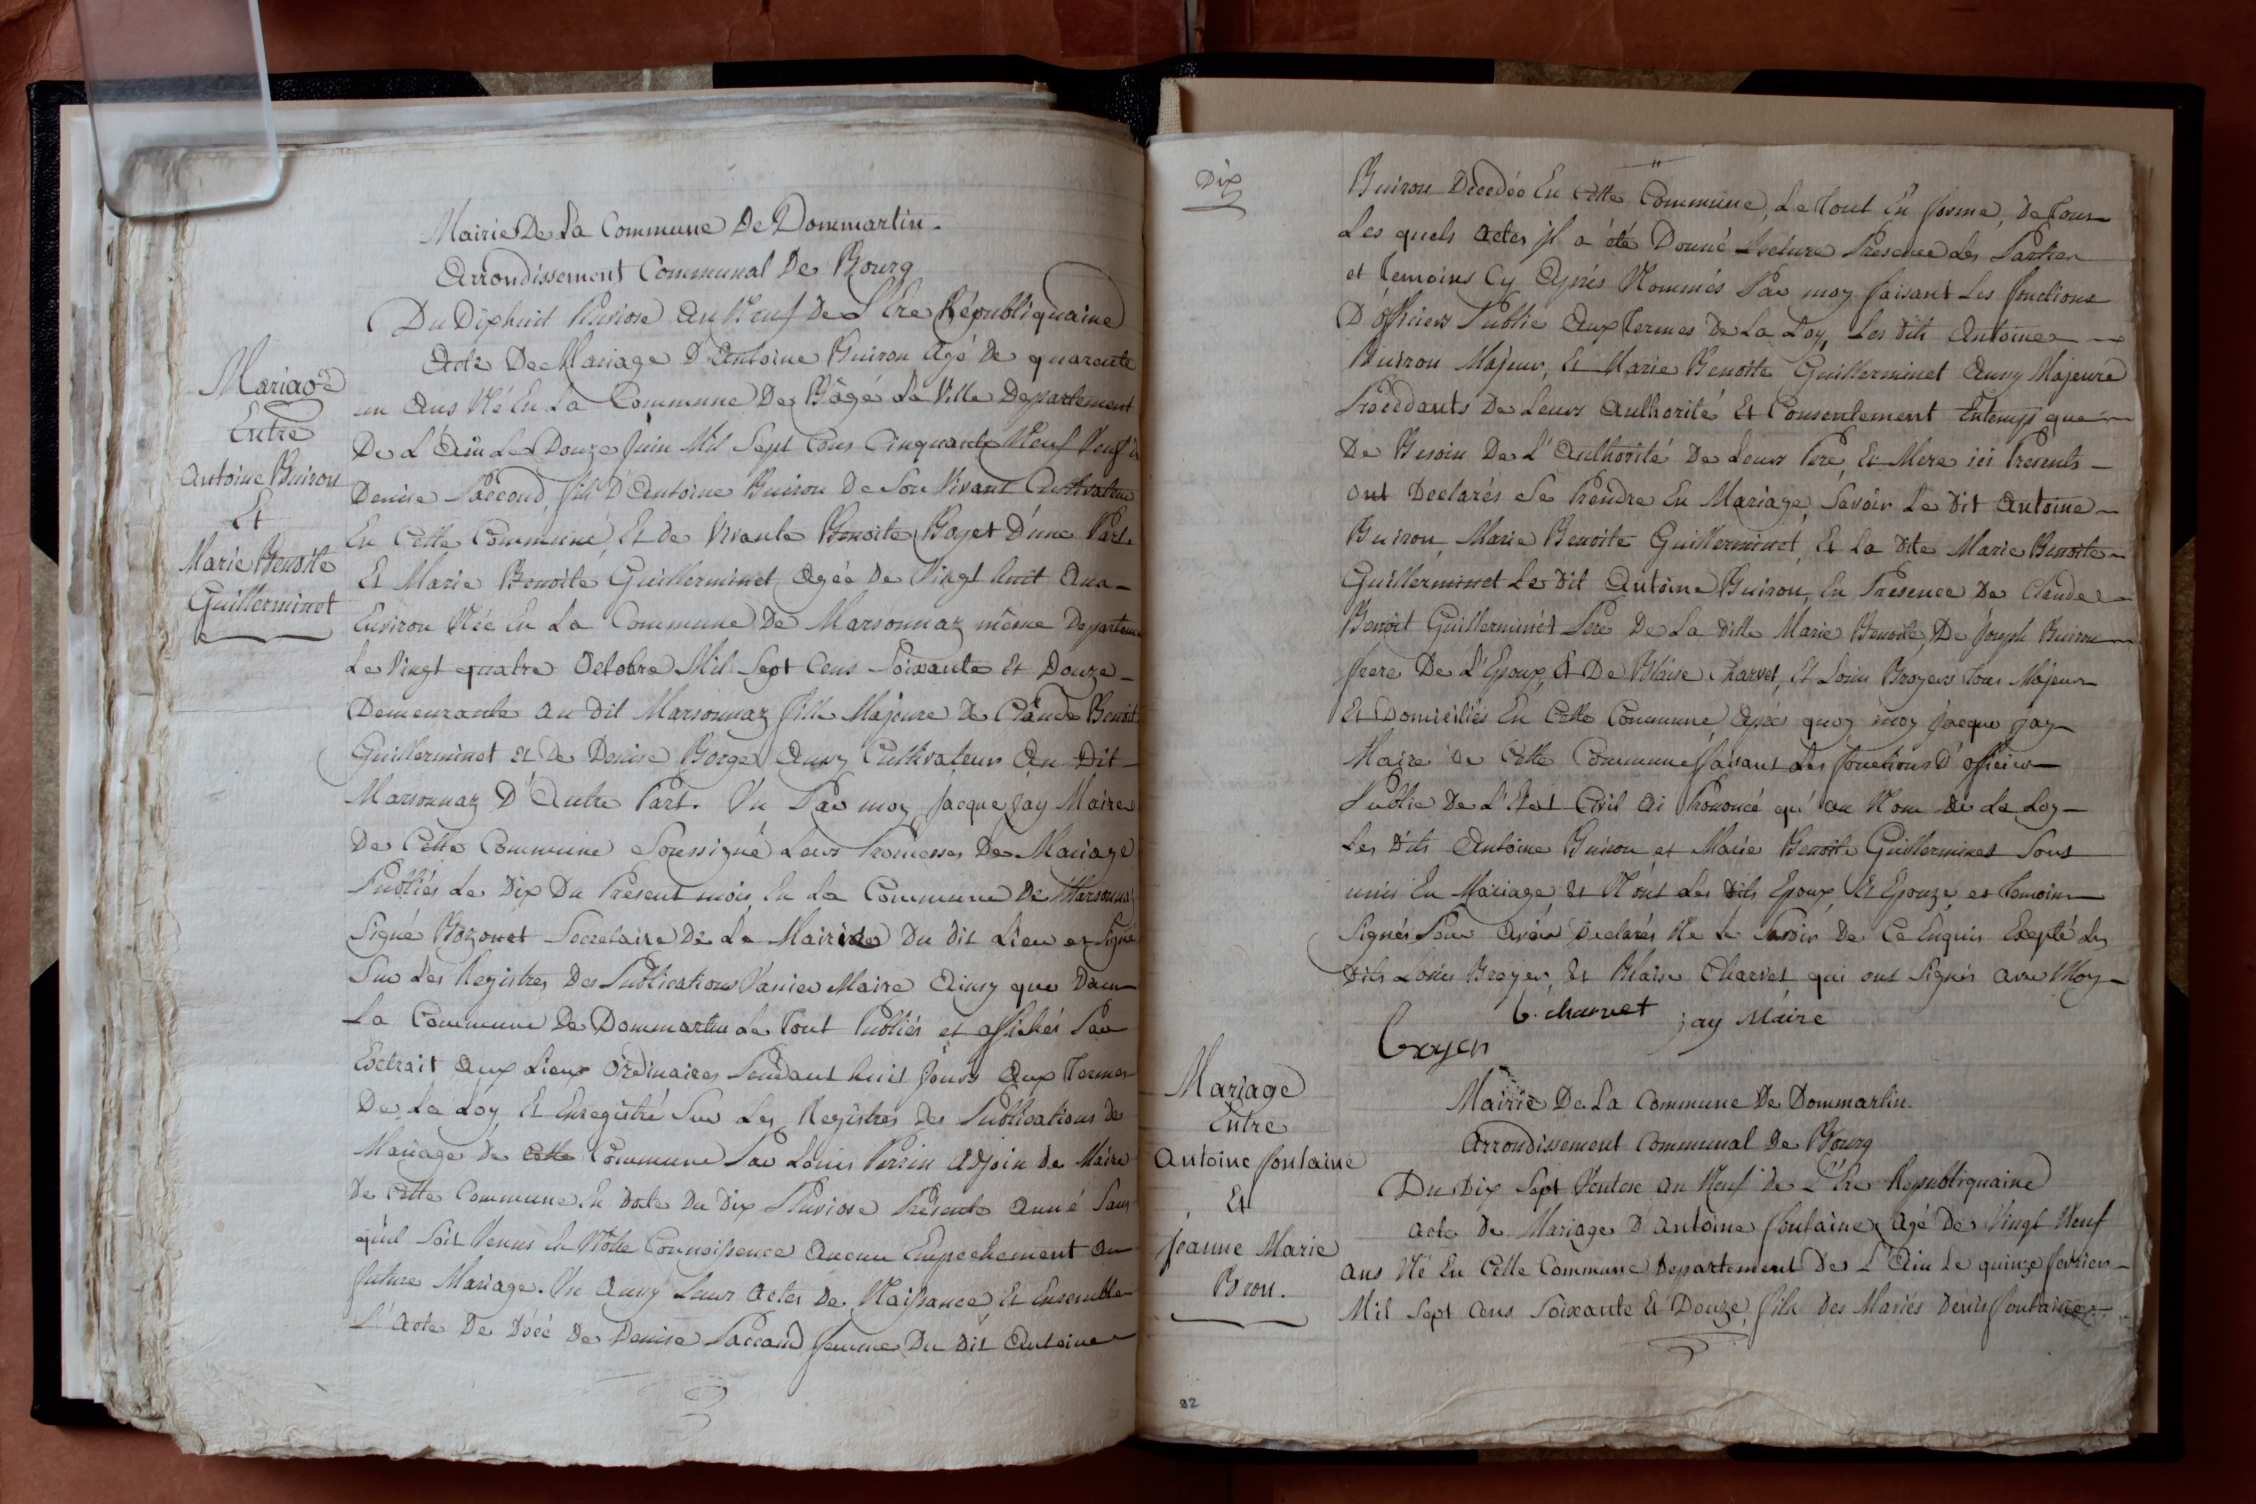 Mairie De La Commune De Dommartin.
Arrondissement Communal De Bourg
Du Dixhuit Pluviose An Neuf De L'Ere Républiquaine
Mariage
Entre
Antoine Buiron
Et
Marie Benoite
Guillerminet
Acte De Mariage D'Antoine Buiron Agé De quarente
un Ans Né En La Commune De Bâgé La Ville Departement
De L'Ain Le Douze Juin Mil Sept Cens Cinquante Neuf Veuf de
Denise Paccoud, fils D'Antoine Buiron De Son Vivant Cultivateur
En Cette Commune, Et de Vivante Benoite Boyet D'une Part.
Et Marie Benoite Guillerminet Agée De Vingt huit Ans
Environ Née En La Commune De Marsonnaz même Departement
Le Vingt quatre Octobre Mil Sept Cens Soixante Et Douze
Demeurante au Dit Marsonnaz fille Majeure De Claude Benoit
Guillerminet et De Denise Borge Aussy Cultivateurs Au Dit
Marsonnaz D'Autre Part. Vu Par moy Jacque Jay Maire
De Cette Commune Soussigné Leurs Promesses De Mariage
Publiés Le Dix Du Present mois En La Commune De Marsonnaz
Signé Bozonet Secretaire De La Mairie Du Dit Lieu et Signé
Sur Les Registres Des Publications Maire Ainsy que Dans
La Commune De Dommartin Le Tout Publiés et affichés Par
Extrait aux Lieux Ordinaires Pendant huit Jours Aux Termes
De La Loy, Et Enregistré Sur Les Registres Des Publications de
Mariage De Cette Commune Par Louis Perrin Adjoin De Maire
De Cette Commune. En Date Du Dix Pluviose Présente Anné Sans
qu'il Soit Venus En Notre Connoissence Aucun Empechement Au
future Mariage. Vu Aussy Leurs Actes De Naissance Et Ensemble
L'Acte De Décé De Denise Paccoud femme Du Dit Antoine
Dix
Buiron Decedée En Cette Commune, Le Tout En forme, De Tous
Les quels Actes Jl a été Donné Lecture Presence Les Parties
et Temoins Cy Après Nommés Par moy faisant Les fonctions
D'officiers Public Aux Termes De La Loy, Les Dits Antoine
Buiron Majeur, Et Marie Benoite Guillerminet Aussy Majeure
Procédants De Leurs Authorité Et Consentement Entemps que
De Besoin De L'Authorité De Leurs Pere, Et Mere ici Presents
ont Declarés Se Prendre En Mariage, Savoir Le Dit Antoine
Buiron, Marie Benoite Guillerminet, Et La Dite Marie Benoite
Guillerminet Le Dit Antoine Buiron, En Presence De Claude
Benoit Guillerminet Pere De La Ditte Marie Benoite, De Joseph Buiron
frere De L'Epoux, Et De Blaise Charvet, Et Louis Broyer Tous Majeurs
Et Domiciliés En Cette Commune, Après quoy moy Jacque Jay
Maire De Cette Commune faisant Les fonctions D'officiers
Public De L'Etat Civil Ai Prononcé qu'au Nom De La Loy
Les Dits Antoine Buiron et Marie Benoite Guillerminet Sont
unis En Mariage, Et N'ont Les Dits Epoux Et Epouze, et Temoins
Signés Pour Avoir Declarés Ne Le Savoir De Ce Enquis Exepté Les
Dits Louis Broyer, Et Blaise Charvet qui ont Signés avec Moy
b. charvet jay Maire
Broyer
Mairie De La Commune De Dommartin.
Arrondissement Communal De Bourg
Du Dix Sept Ventose An Neuf De L'Ere Republiquaine
Mariage
Entre
Antoine fontaine
Et
Jeanne Marie
Bron.
Acte De Mariage D'Antoine fontaine, Agé De Vingt Neuf
Ans Né En Cette Commune Departement De L'Ain Le quinze fevrier
Mil Sept Cens Soixante Et Douze, fils Des Mariés Denis fontaine
82